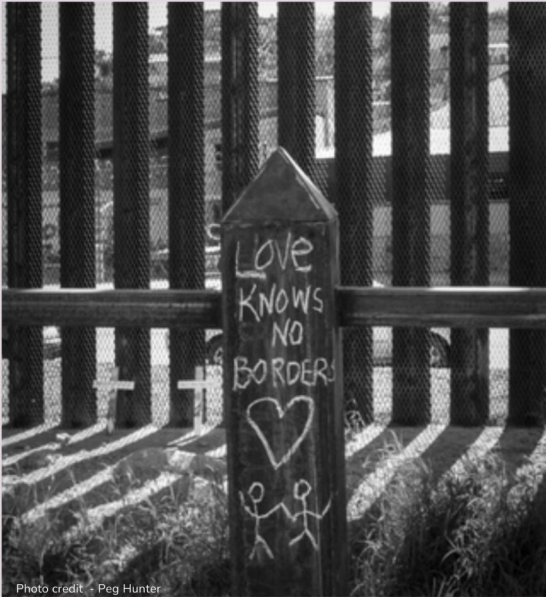 LOVE
KNOWS
NO
BORDERS
Photo credit - Peg Hunter